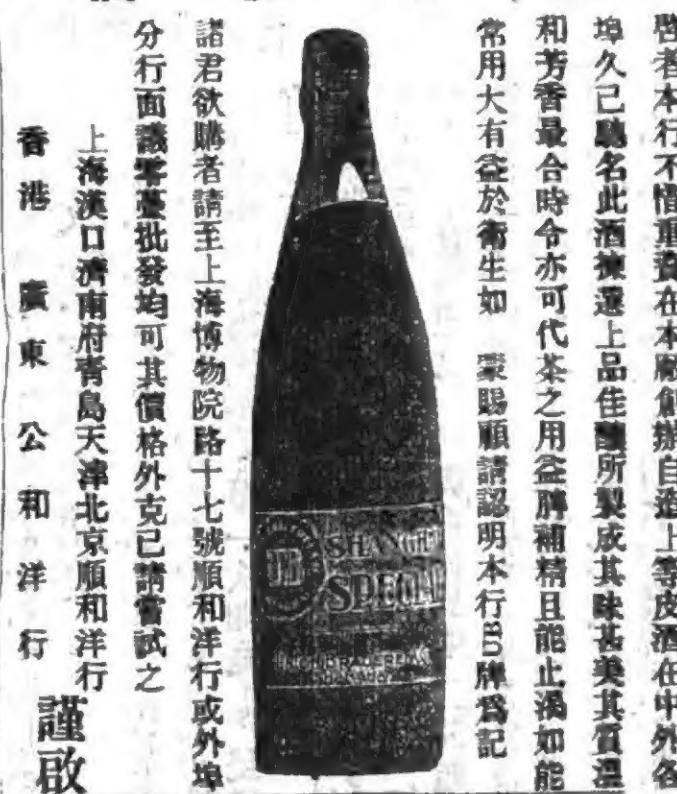 啓者本行不惜重資在本廠創辦自造上等皮酒在中外各
埠久已馳名此酒揀選上品佳釀所製成其味甚美其質溫
和芳香最合時令亦可代茶之用益脾補精且能止渴如能
常用大有益於衞生如 蒙賜顧請認明本行 牌爲記
SHANGH
SPECIAL
諸君欲購者請至上海博物院路十七號順和洋行或外埠
分行面議零躉批發均可其價格外克已請嘗試之
上海漢口濟南府靑島天津北京順和洋行
香港 廣東 公和洋行
謹啟